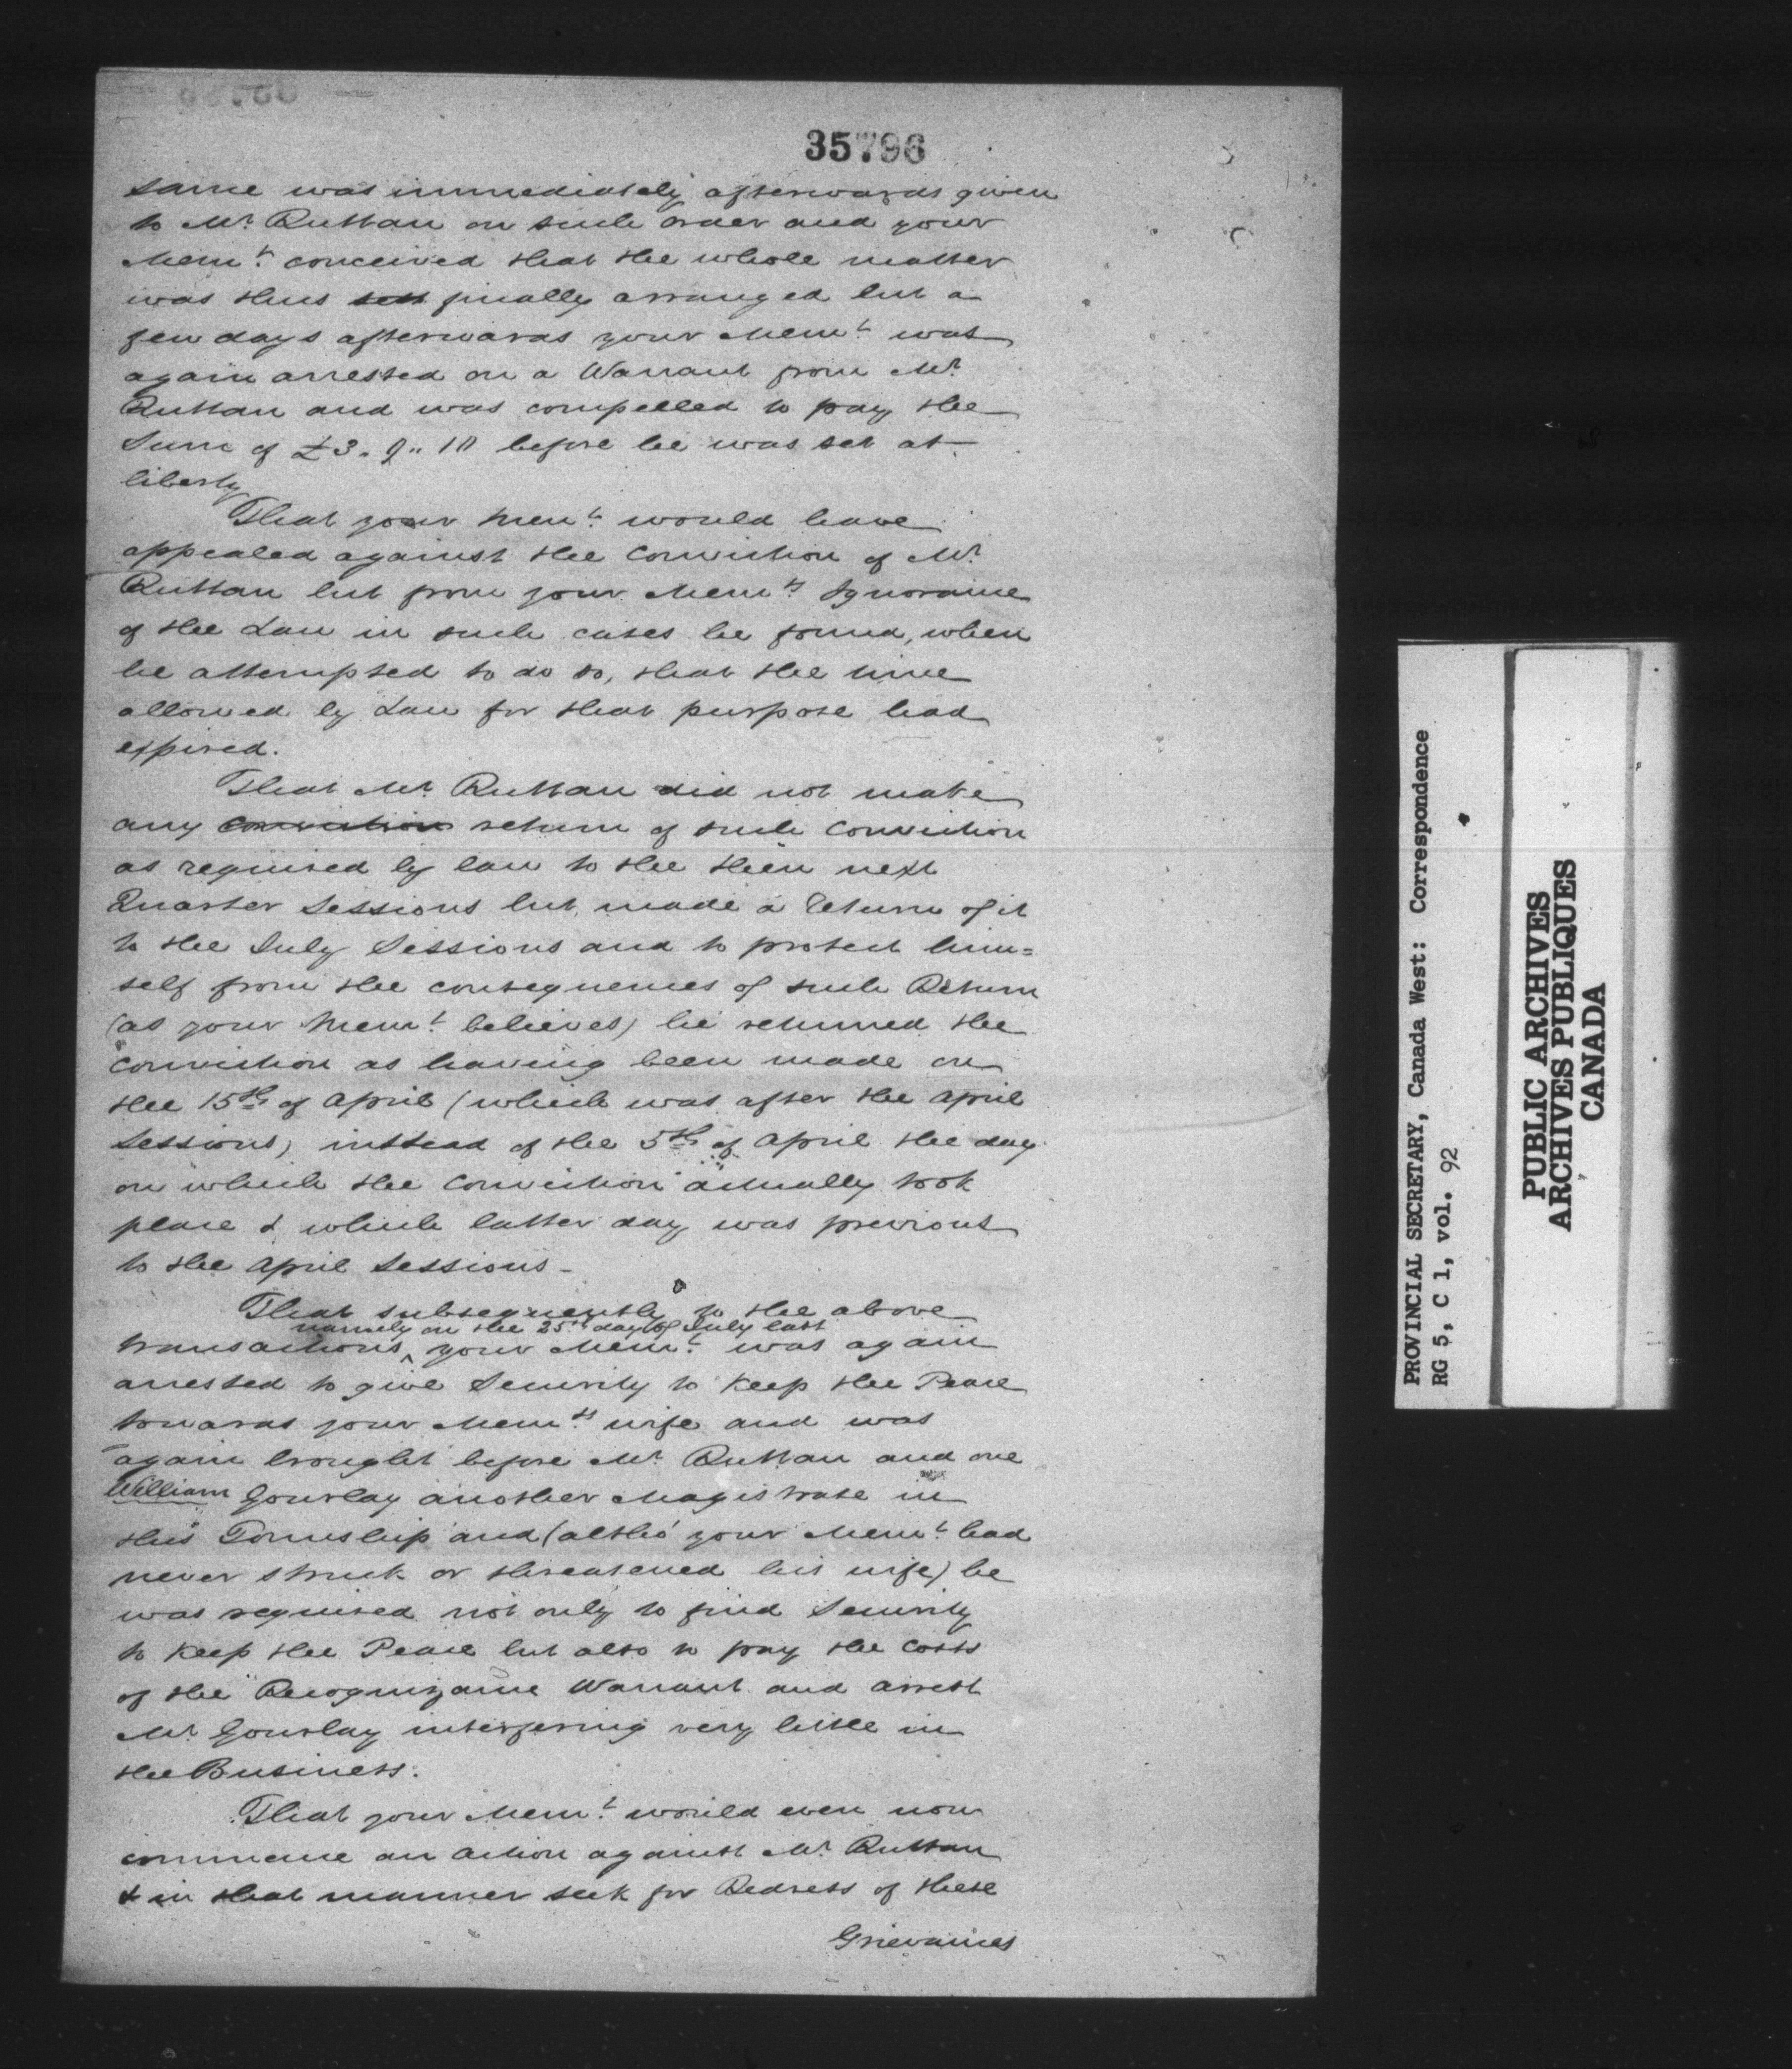 35796
same was immediately afterwards given
to Mr. Ruttan on such order and your
Memt. conceived that the whole matter
was thus sett finally arranged but a
few days afterwards your Memt. was
again arrested on a Warrant from Mr.
Ruttan and was compelled to pay the
Sum of £3. 9.. 10 before he was set at
liberty
That your Memt. would have
appealed against the Conviction of Mr.
Ruttan but from your Memts. Ignorance
of the Law in such cases he found, when
he attempted to do so, that the time
allowed by Law for that purpose had
expired.
That Mr. Ruttan did not make
any conviction return of such Conviction
as required by law to the then next
Quarter Sessions but made a Return of it
to the July Sessions and to protect him=
self from the consequences of such Return
(as your Memt. believes) he returned the
conviction as having been made on
the 15th of April (which was after the April
Sessions) instead of the 5th of April the day
on which the Conviction actually took
place & which latter day was previous
to the April Sessions -
That subsequently to the above
namely on the 25th day of July last
transactions ^ your Memt. was again
arrested to give Security to Keep the Peace
towards your Memts. wife and was
again brought before Mr. Ruttan and one
William Gourlay another Magistrate in
this Township and (altho' your Memt. had
never struck or threatened his wife) he
was required not only to find Security
to Keep the Peace but also to pay the Costs
of the Recognizance Warrant and arrest
Mr. Gourlay interfering very little in
the Business.
That your Memt. would even now
commence an Action against Mr. Ruttan
& in that manner seek for Redress of these
Grievances
PROVINCIAL SECRETARY, Canada West: Correspondence
RG 5, C 1, vol. 92
PUBLIC ARCHIVES
ARCHIVES PUBLIQUES
CANADA